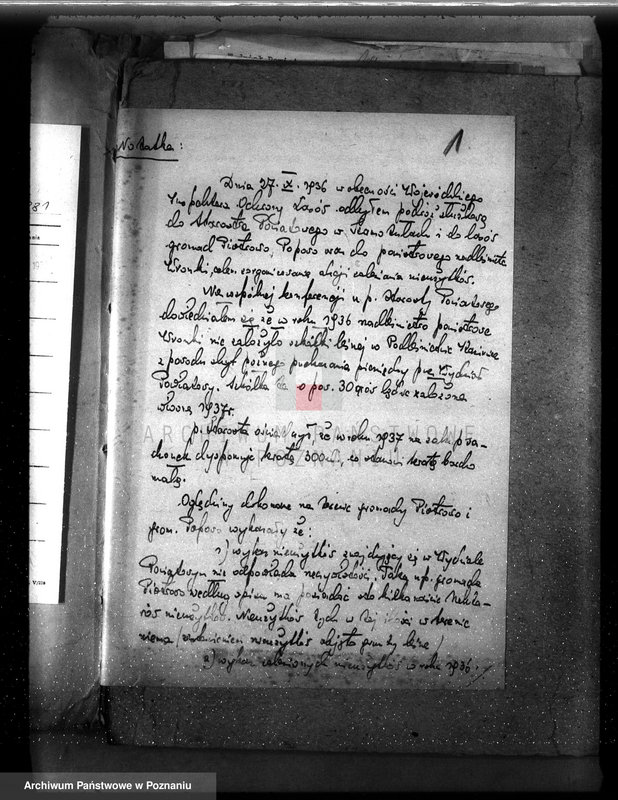 1
Notatka:
Dnia 27. X. 1936 w obecności Wojewódzkiego
Inspektora Ochrony Lasów odbyłem podróż służbową
do Starostwa Powiatowego w Szamotułach i do lasów
gromad Piotrowo, Popowo oraz do państwowego nadleśnictwa
Wronki, celem zorganizowania akcji zalesiania nieużytków.
Na wspólnej konferencji u p. Starosty Powiatowego
dowiedziałem się że w roku 1936 nadleśnictwo państwowe
Wronki nie założyło szkółki leśnej w Podleśnictwie
z powodu zbyt późnego przekazania pieniędzy przez Wydział
Powiatowy. Szkółka ta o pow. 30 arów będzie założona
wiosną 1937 r.
p. Starosta oświadczył, że w roku 1937 na zakup sa-
dzonek dysponuje kwotą 300 zł, co stanowi kwotę bardzo
małą.
Oględziny dokonane na terenie gromady Piotrowo i
grom. Popowo wykazały że:
1) wykaz nieużytków znajdujący się w Wydziale
Powiatowym nie odpowiada rzeczywistości. Taką np. gromada
Piotrowo według spisu ma posiadać kilkanaście hekta-
rów nieużytków. Nieużytków tych w tej ilości w terenie
niema / nieużytków objęto grunty leśne
2) wykaz zalesionych nieużytków w roku 1936.
ARCHIWUM PAŃSTWOWE
POZNANIU
Archiwum Państwowe w Poznaniu